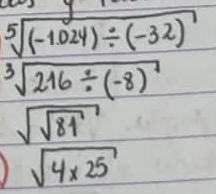 ⁵√(-1.024) ÷ (-32)
³√216 ÷ (-8)
√√81
√4 x 25